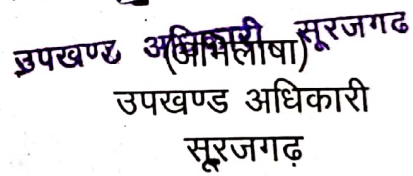 उपखण्ड अधिकारी सूरजगढ
(अभिलाषा)
उपखण्ड अधिकारी
सूरजगढ़